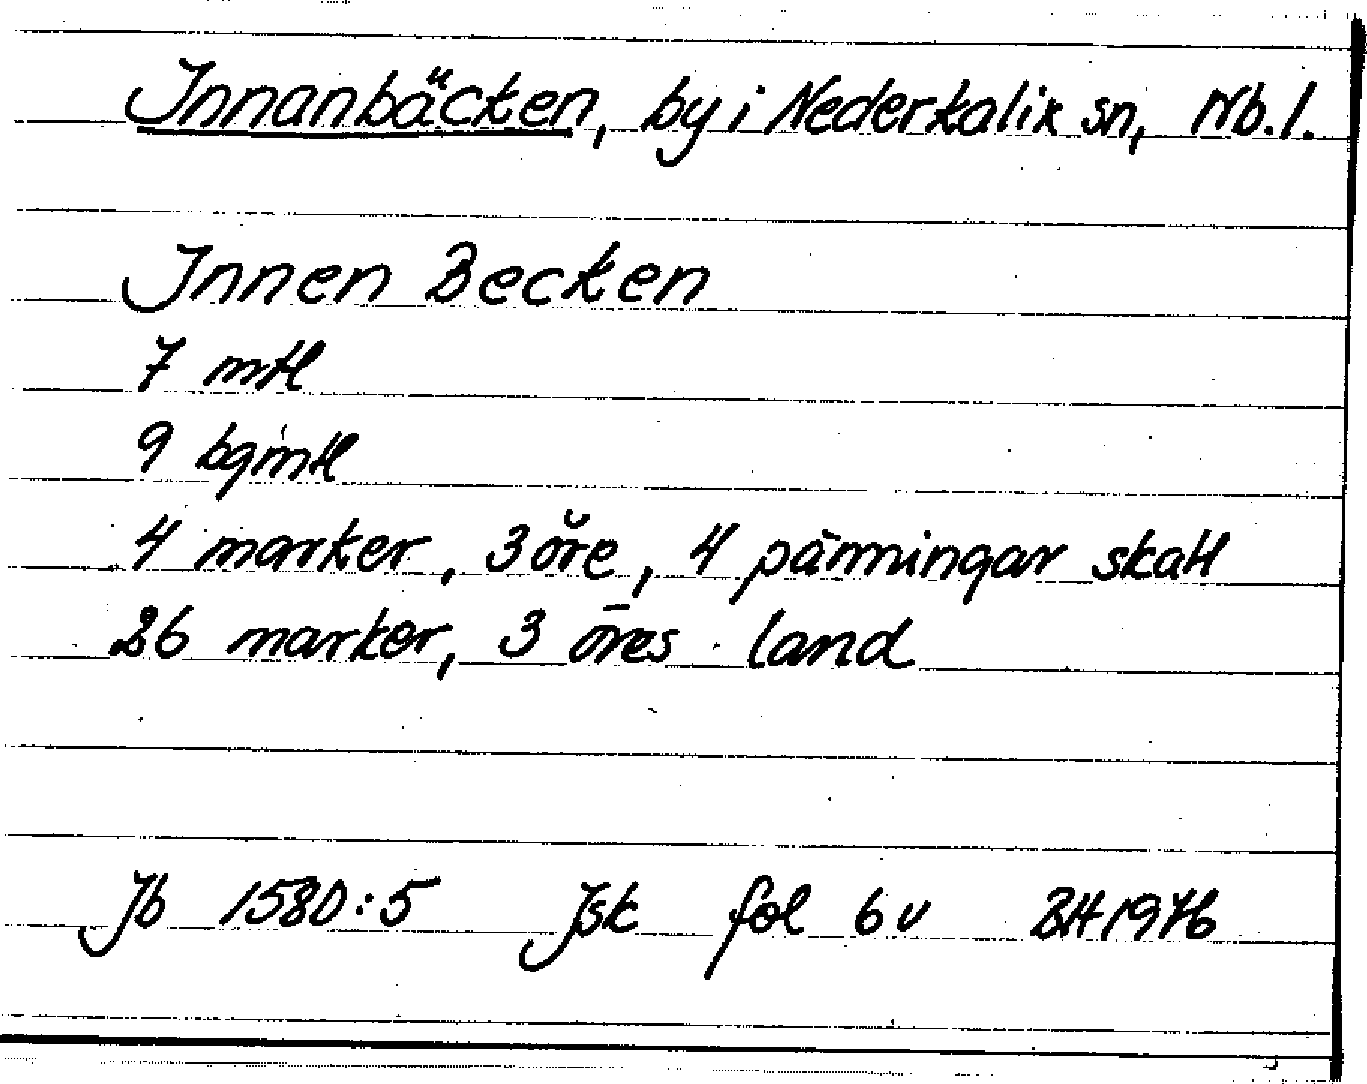 Innanbäcken, by i Nederkalix sn, Nb. l.
Innen Becken
7 mtl
9 bgmtl
4 marker, 3 öre, 4 pänningar skatt
26 marker, 3 öres land
Jb 1580:5 Jsk fol 6 v BH 1976